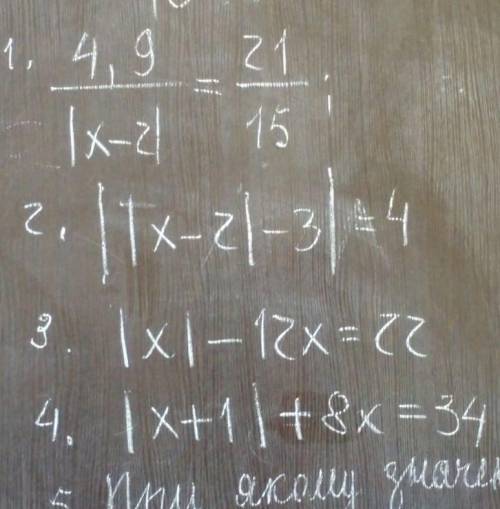 1. 4,9 / |x-2| = 21 / 15 ;
2. ||x-2|-3|=4
3. |x|-12x=22
4. |x+1|+8x=34
5. При якому